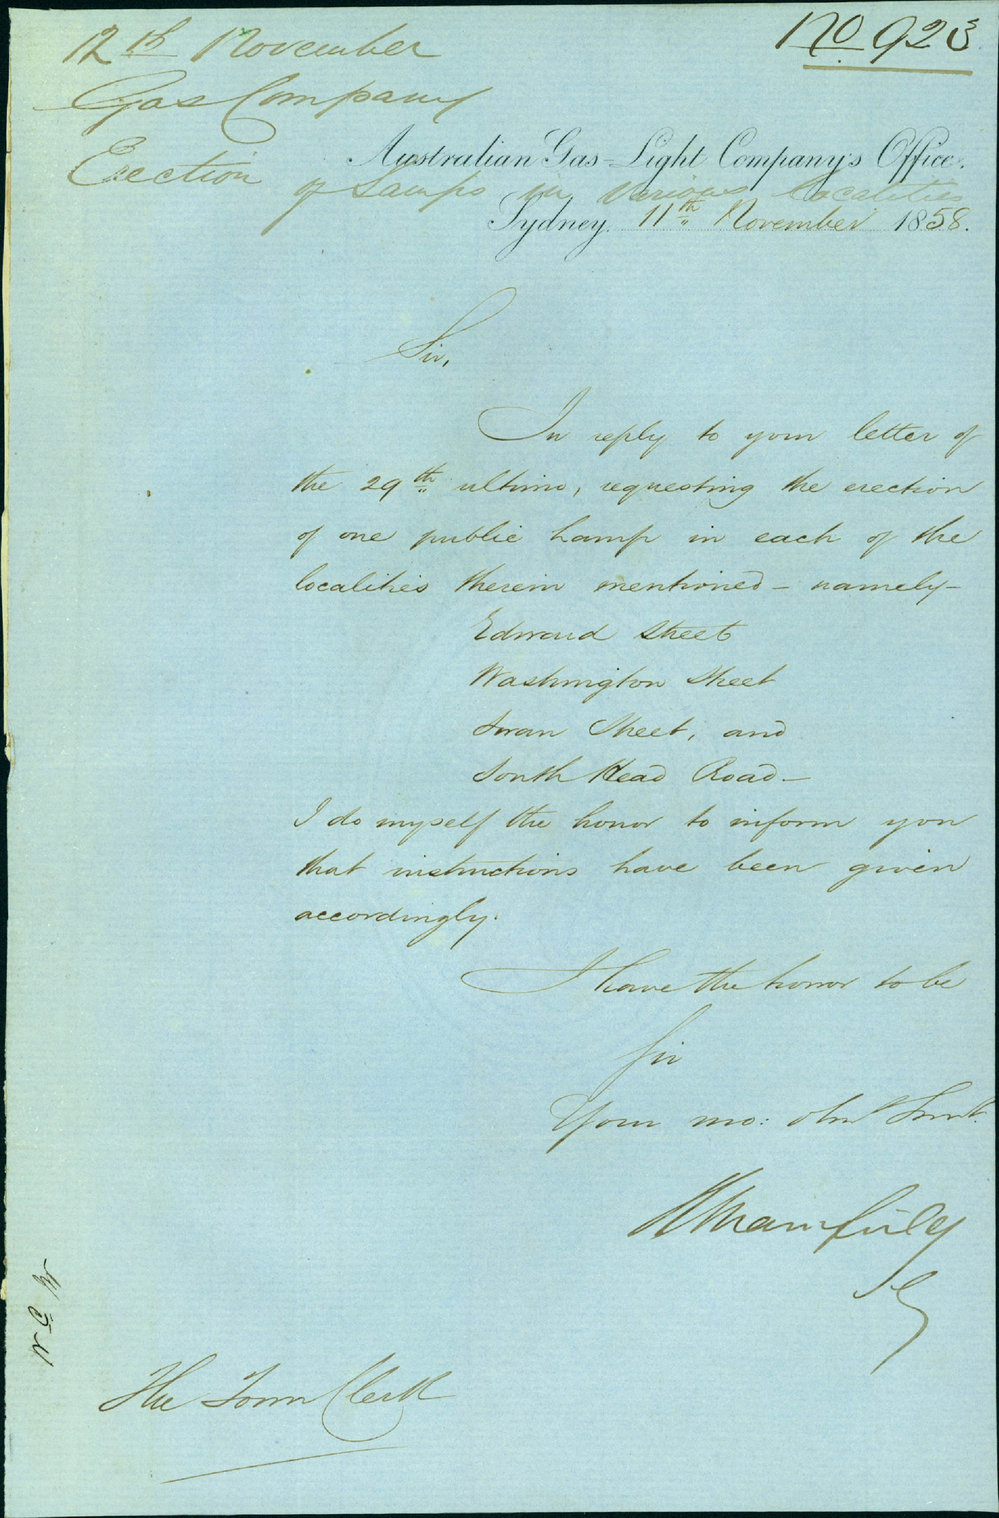 12th November
No 923
Gas Company
Erection of Lamps in various localities
Australian Gas-Light Company's Office.
Sydney, 11th November 1858.
Sir,
In reply to your letter of
the 29th ultimo, requesting the erection
of one public Lamp in each of the
localities therein mentioned - namely -
Edward Street
Washington Street
Swan Street, and
South Head Road -
I do myself the honor to inform you
that instructions have been given
accordingly.
I have the honor to be
Sir
Your mo: obt Servt.
The Town Clerk